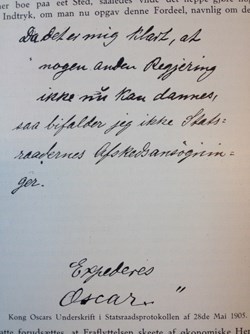 mer boe paa eet Sted, saaledes vilde det heppe
Indtryk, om man nu opgav denne Fordeel, navnlig om de
Da det er mig klart, at
nogen anden Regjering
ikke nu kan dannes,
saa bifalder jeg ikke Stats-
raadernes Afskedsansøgnin-
ger.
Expederes
Oscar."
Kong Oscars Underskrift i Statsraadsprotokollen af 28de Mai 1905.
forudsættes, at Fraflyttelsen skeete af økonomiske